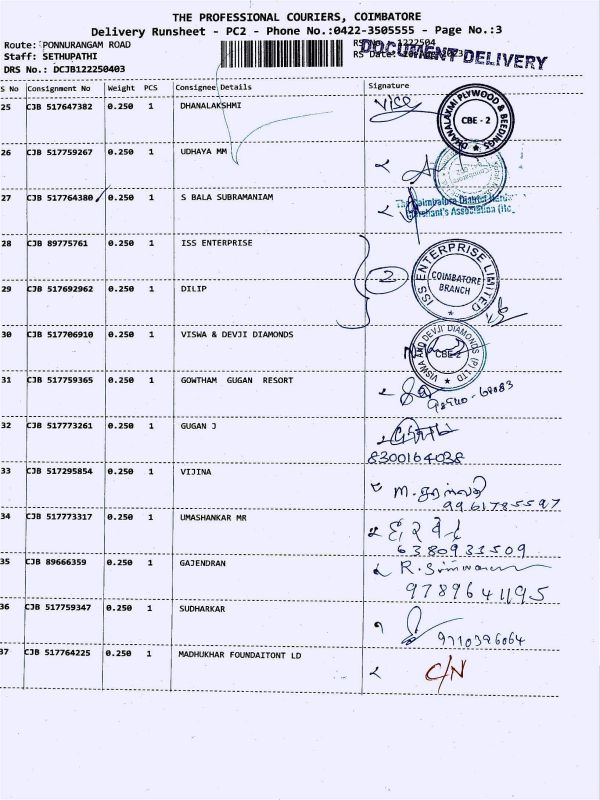 THE PROFESSIONAL COURIERS, COIMBATORE
Delivery Runsheet - PC2 - Phone No.:0422-3505555 - Page No.:3
Route: PONNURANGAM ROAD
RS No.: 1222504
Staff: SETHUPATHI
RS Date:
DOCUMENT DELIVERY
DRS No.: DCJB122250403
S No Consignment No Weight PCS Consignee Details Signature
25 CJB 517647382 0.250 1 DHANALAKSHMI
DHANALAXMI PLYWOOD & BEEDINGS
CBE - 2
26 CJB 517759267 0.250 1 UDHAYA MM
27 CJB 517764380 0.250 1 S BALA SUBRAMANIAM
The Coimbatore District
Merchant's Association
28 CJB 89775761 0.250 1 ISS ENTERPRISE
2
ISS ENTERPRISE LIMITED
COIMBATORE
BRANCH
29 CJB 517692962 0.250 1 DILIP
30 CJB 517706910 0.250 1 VISWA & DEVJI DIAMONDS
VISWA AND DEVJI DIAMONDS (P) LTD
CBE-2
31 CJB 517759365 0.250 1 GOWTHAM GUGAN RESORT
32 CJB 517773261 0.250 1 GUGAN J
8300164038
33 CJB 517295854 0.250 1 VIJINA
9961785597
34 CJB 517773317 0.250 1 UMASHANKAR MR
6380931509
35 CJB 89666359 0.250 1 GAJENDRAN
9789641195
36 CJB 517759347 0.250 1 SUDHARKAR
9710396064
37 CJB 517764225 0.250 1 MADHUKHAR FOUNDAITONT LD
C/N